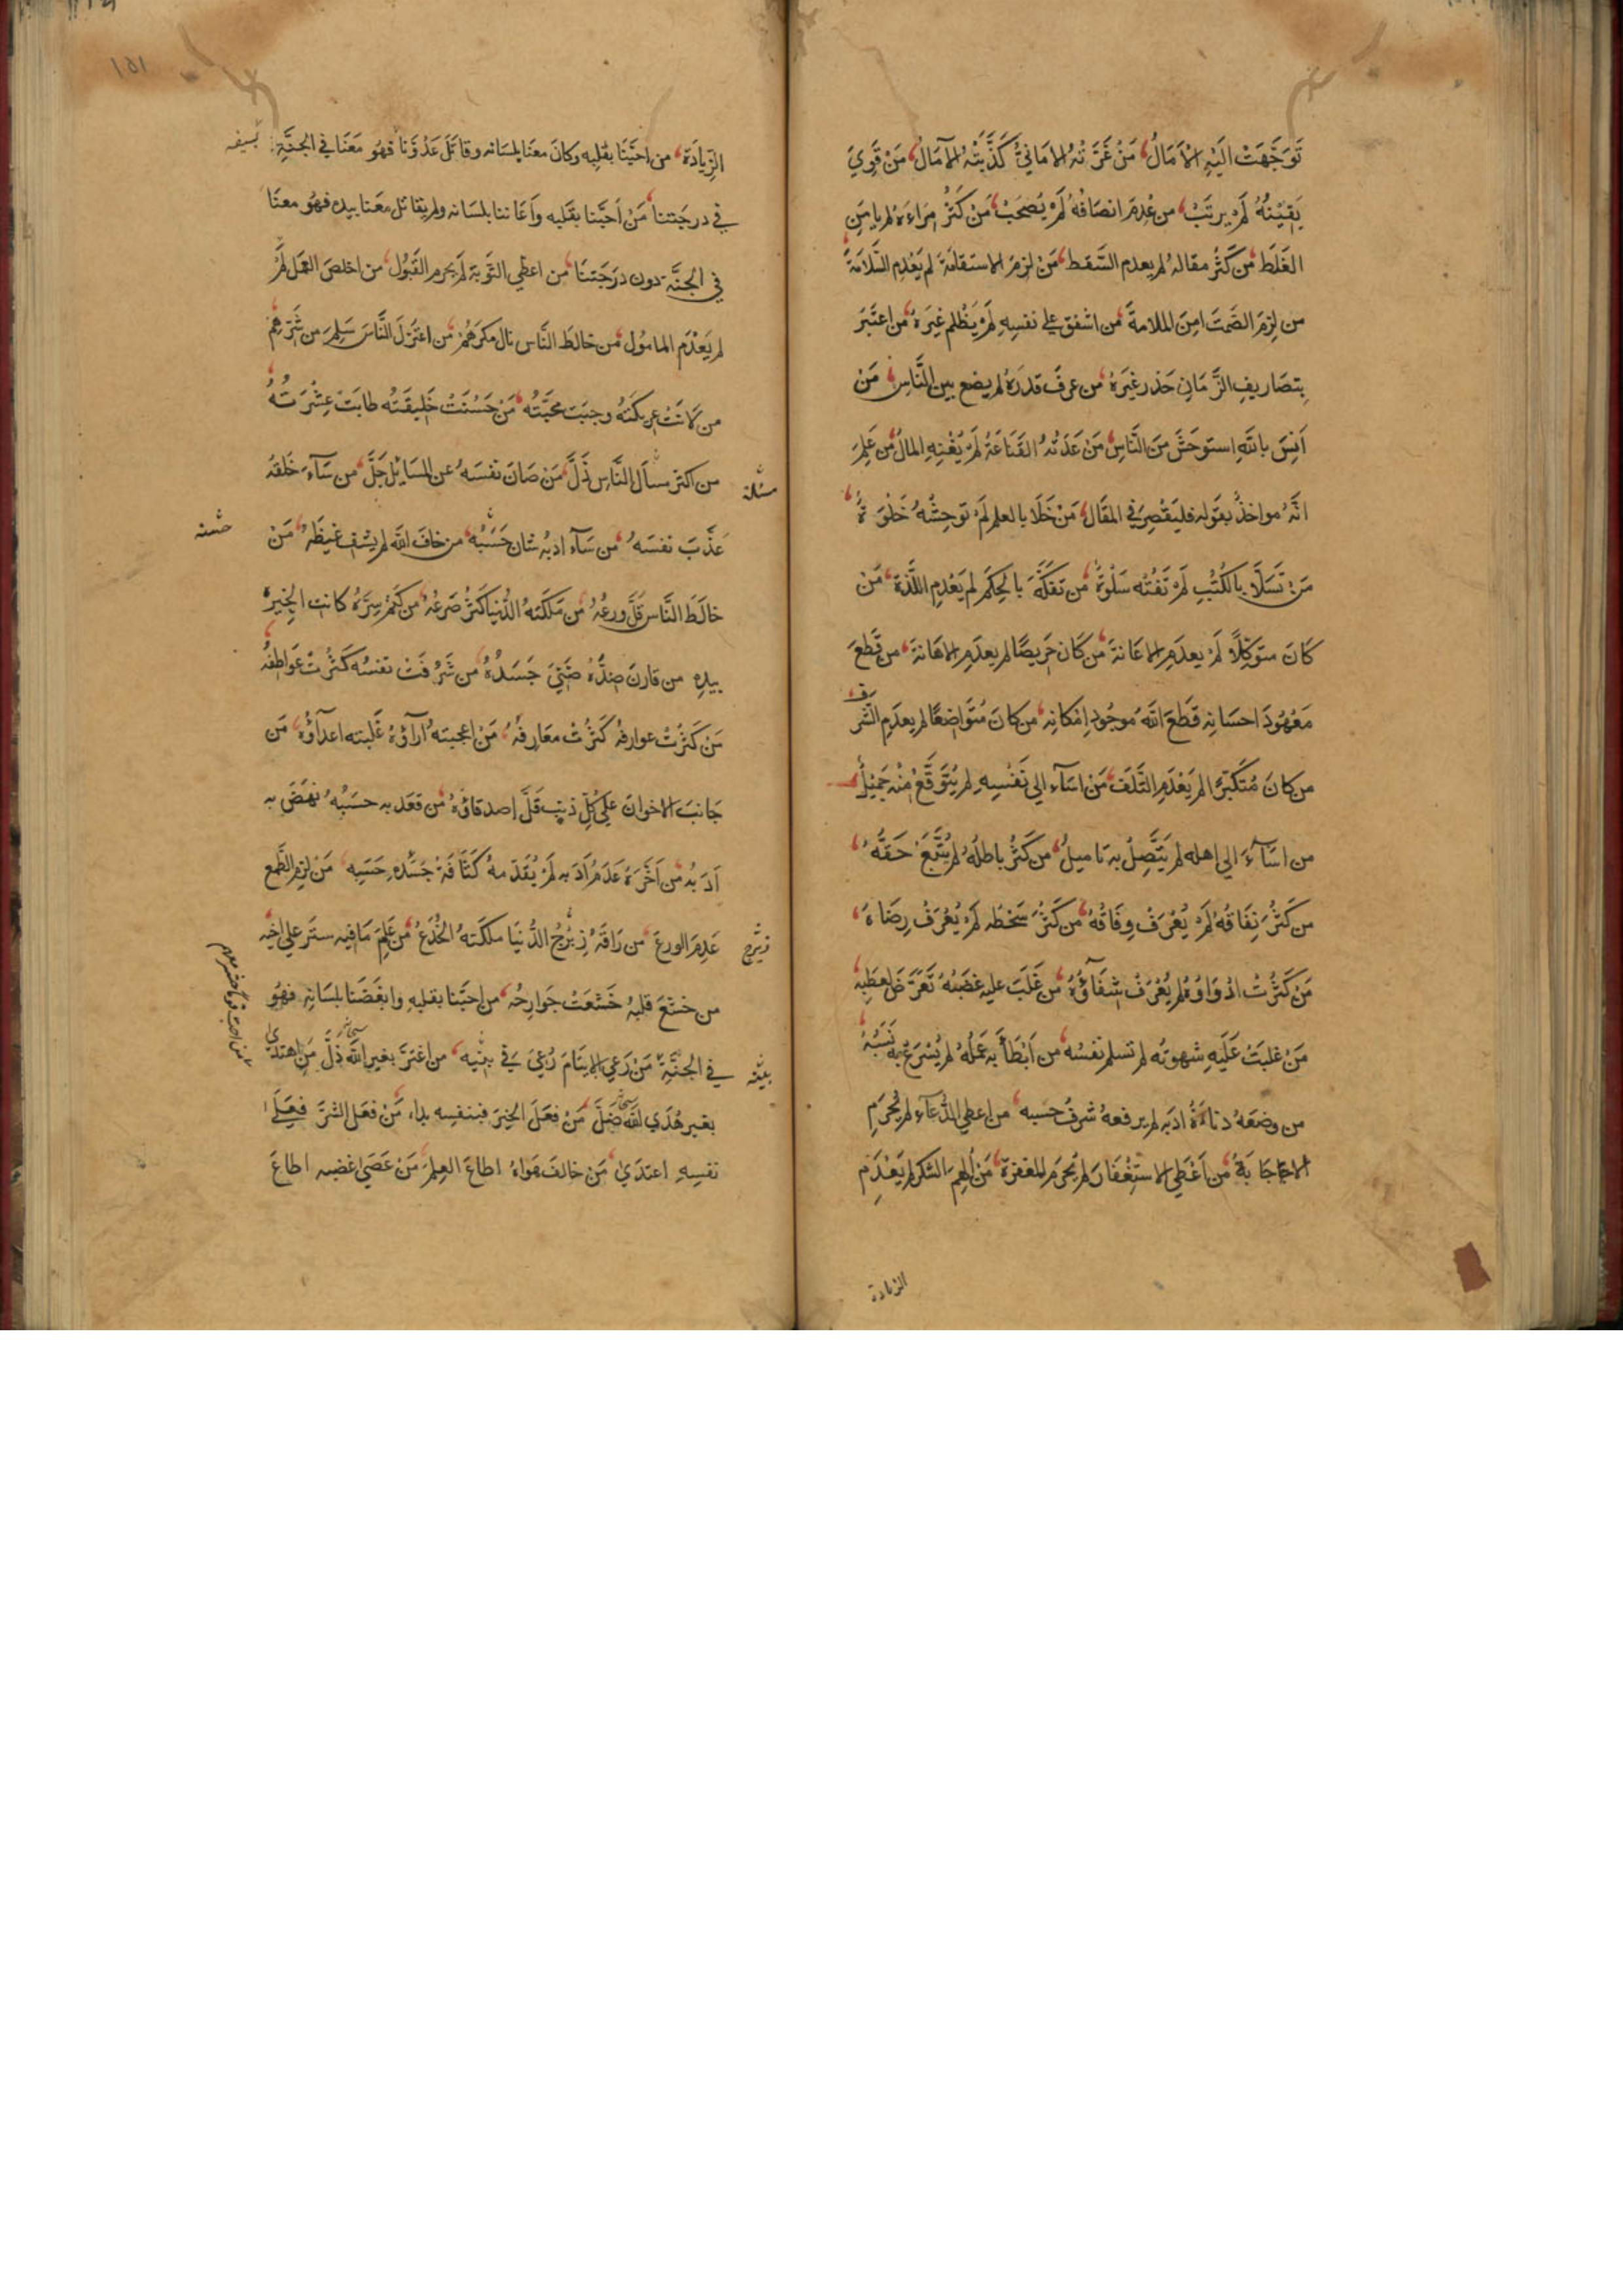 تَوَجَّهَتْ اِلَيْهِ الْآمَالُ، مَنْ غَرَّتْهُ الامَانِيُّ كَذَّبَتْهُ الآمَالُ، مَنْ قَوِيَ
يَقِيْنُهُ لَمْ يرتَبْ، من عُدِمَ انصَافُهُ لَمْ يُصحَبْ، مَنْ كَثُرَ مِرَاءُهُ لم يامَنِ
الغَلَطَ، من كَثُرَ مقالهُ لم يعدم السَّقط، مَنْ لزمَ الاستقامَةَ لم يَعْدِمِ السَّلامَةَ
من لزِمَ الصَمتَ امِنَ الملامةَ، من اشفق علي نفسِهِ لَمْ يَظْلم غيرَهُ، من اعتَبَرَ
بِتصَاريفِ الزَّمَانِ حَذرَ غيَرهُ، من عرفَ قدرَهُ لم يضع بين النَّاسِ، مَنْ
اَنِسَ باللّهِ استوحَشَ مَنَ النَّاسِ، مَنْ عَدَتْهُ القَنَاعَةُ لَمْ يُغْنِهِ المالُ، من عَلِمَ
انَّهُ مواخذٌ بقولهِ فليَقْصِرْ في المقَالِ، مَنْ خَلَا بالعلم لَمْ توحِشْهُ خَلْوَةٌ،
مَنْ تَسَلَّا بالكُتُبِ لَمْ تَفُتْهُ سَلْوَةٌ، من تفكَّهَ بالحِكَمِ لم يَعْدِمِ اللَّذَةَ، مَنْ
كانَ متوَكِّلًا لَمْ يعدَمِ الاعَانةَ، من كانَ حَرِيصًا لم يعدَمِ الاهَانةَ، من قَطعَ
مَعْهُودَ احسَانِهِ قَطَعَ اللّهُ موجُودَ اِمْكانِهِ، من كانَ مُتَوَاضِعًا لم يعدَمِ الشَّرَف،
من كانَ مُتَكَبِّرًا لم يَعْدَمِ التَّلَفَ، مَنْ اسَآءَ الي نَفْسِهِ لم يُتَوَقَّعْ مِنْهُ جَمِيْلٌ
من اسَآءَ الي اهله لم يَتَّصِلْ به تَامِيلٌ، من كَثُرَ باطلُهُ لم يُتَّبَعْ حَقُّهُ،
من كَثُرَ نِفَاقُهُ لَمْ يُعْرَفْ وِفَاقُهُ، من كَثُرَ سَخطه لَمْ يُعْرَفْ رِضَاهُ،
مَنْ كَثُرَتْ ادْوَاؤُهُ لم يُعْرَفْ شِفَآؤُهُ، مَن غَلَبَ عليه غضَبُهُ تَعَرَّضَ لعطَبِهِ،
مَنْ غلبَتْ عَلَيهِ شهوتُه لم تسلم نفسُه، من اَبْطَأَ به عَمَلُهُ لم يُسْرِعْ بِهِ نَسَبُهُ،
من وضعَهُ دناءَةُ ادبِهِ لم يرفعهُ شرفُ حسبه، من اعطِي الدُّعَآء لم يُحْرَمِ
الاجَابَةَ، من اُعْطِي الاستِغْفَارَ لم يُحْرَمِ المغفرَةَ، مَنْ اُلهِمَ الشكرَ لم يَعْدَمِ
الزيادة
١٥١
الزِّيادَةَ، من احَبَّنَا بقلبِهِ وكانَ معنَا بلسَانه وقاتَلَ عَدُوَّنا فهُو مَعَنَا في الجنَّةِ بسيفه
في درجَتنا، مَنْ اَحبَّنا بقلبه واَعَاننا بلسَانه ولم يقاتل معَنا بيده فهُو معنَا
في الجنَّة دون درَجَتنَا، من اعطِي التَّوبة لم يحرم القَبُول، من اخلصَ العَمَل لَمْ
لم يَعْدَمِ المامُول، من خالطَ النَّاس نال مكرَهُمْ، من اعتَزلَ النَّاسَ سَلِمَ من شَرِّهِمْ
من لَانَتْ عريكَتُهُ وجبَت محبَّتُه، مَنْ حَسُنَتْ خَلِيقَتُه طابَتْ عِشْرَتُهُ،
من اكثر مسألة النَّاسِ ذَلَّ، مَنْ صَانَ نفسَهُ عن المسَايِلِ جَلَّ، من سَآءَ خلقهُ
مسئلة
عَذَّبَ نفسَهُ، من سَآءَ ادبُه شانَ حَسَبُه، من خافَ اللّه لم يشف غيظَهُ، مَنْ
حسبه
خالَطَ النَّاس قَلَّ ورعُهُ، من مَلكَتهُ الدُّنيا كَثُرَ صَرعُهُ، من كَتَمَ سِرَّهُ كانت الخِيرةُ
بيدِهِ، من قارنَ ضِدَّهُ ضَنِيَ جَسَدُهُ، من شَرُفَتْ نفسُه كَثُرتْ عَواطِفُه
مَنْ كَثُرَتْ عوارفهُ كَثُرَتْ معَارِفُهُ، مَنْ اعجبَتهُ آرآؤُهُ غَلبته اعدآؤُهُ، مَن
جَانبَ الاخوانَ علي كُلِّ ذنبٍ قَلَّ اصدقاؤهُ، من قعَد به حسَبُهُ نهضَ به
اَدَبُه، من اَخَّرَهُ عَدَمُ اَدَبِهِ لَمْ يُقَدِّمهُ كَثَافَةُ حسبِهِ، مَنْ لزم الطَّمع
عَدِمَ الورعَ، من رَاقَهُ زِبْرِجُ الدُّنيَا ملكَتهُ الخُدَعُ، من عَلِمَ مَا فيه ستَر علي اخيه
زبرج
من خشَعَ قلبهُ خَشَعَتْ جَوارِحُه، من احبَّنا بقلبهِ وابغَضَنا بلسَانِهِ فهُو
في الجنَّةِ، مَنْ رَعي الايتَامَ رُعِيَ في بنيه، من اغترَّ بغيرِ اللّه سبحانه ذلَّ، مَنِ اهتدَي
بنيه
بغير هُدَي اللّه سبحانه ضَلَّ، مَنْ فعَلَ الخيرَ فبنفسِه بدا، مَنْ فعَل الشرَّ فعَلَي
نفسِهِ اعتدَي، مَنْ خالفَ هَواهُ اطاعَ العِلمَ، مَنْ عَصَي غضبه اطاعَ
من احب قوما حشر معهم